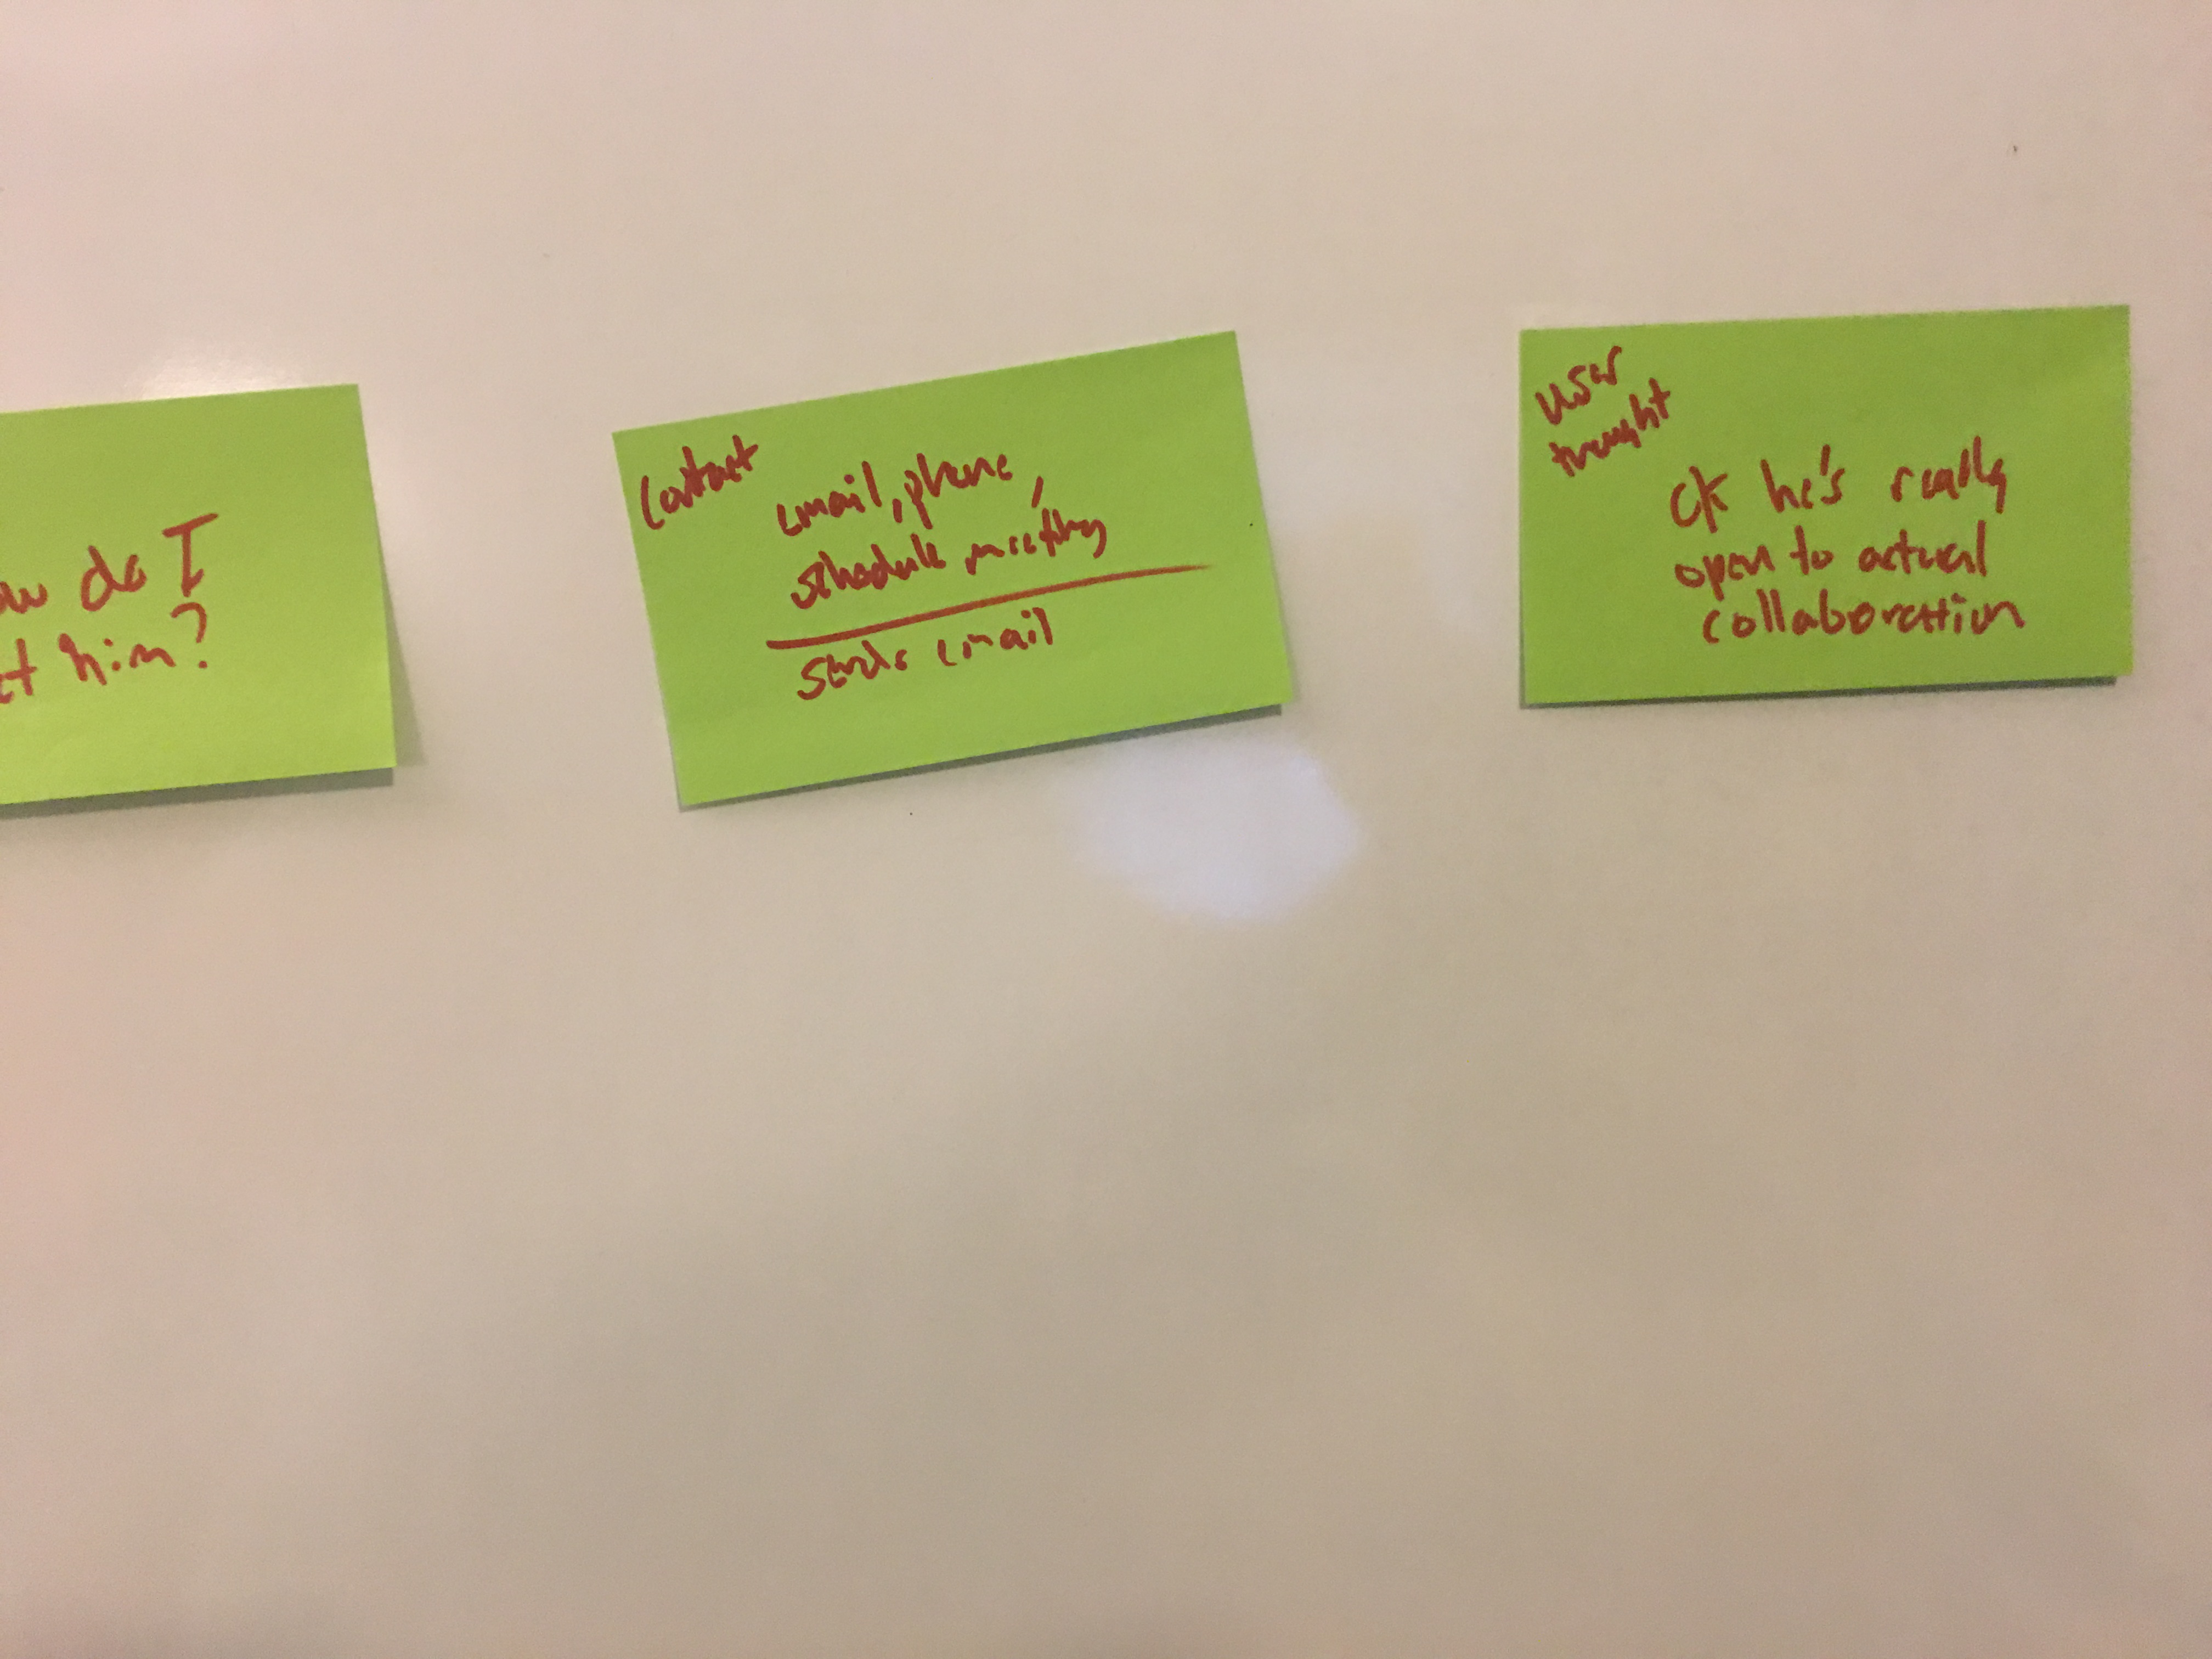 ow do I
ct him?
Contact
email, phone,
schedule meeting
sends email
user
thought
ok he's really
open to actual
collaboration